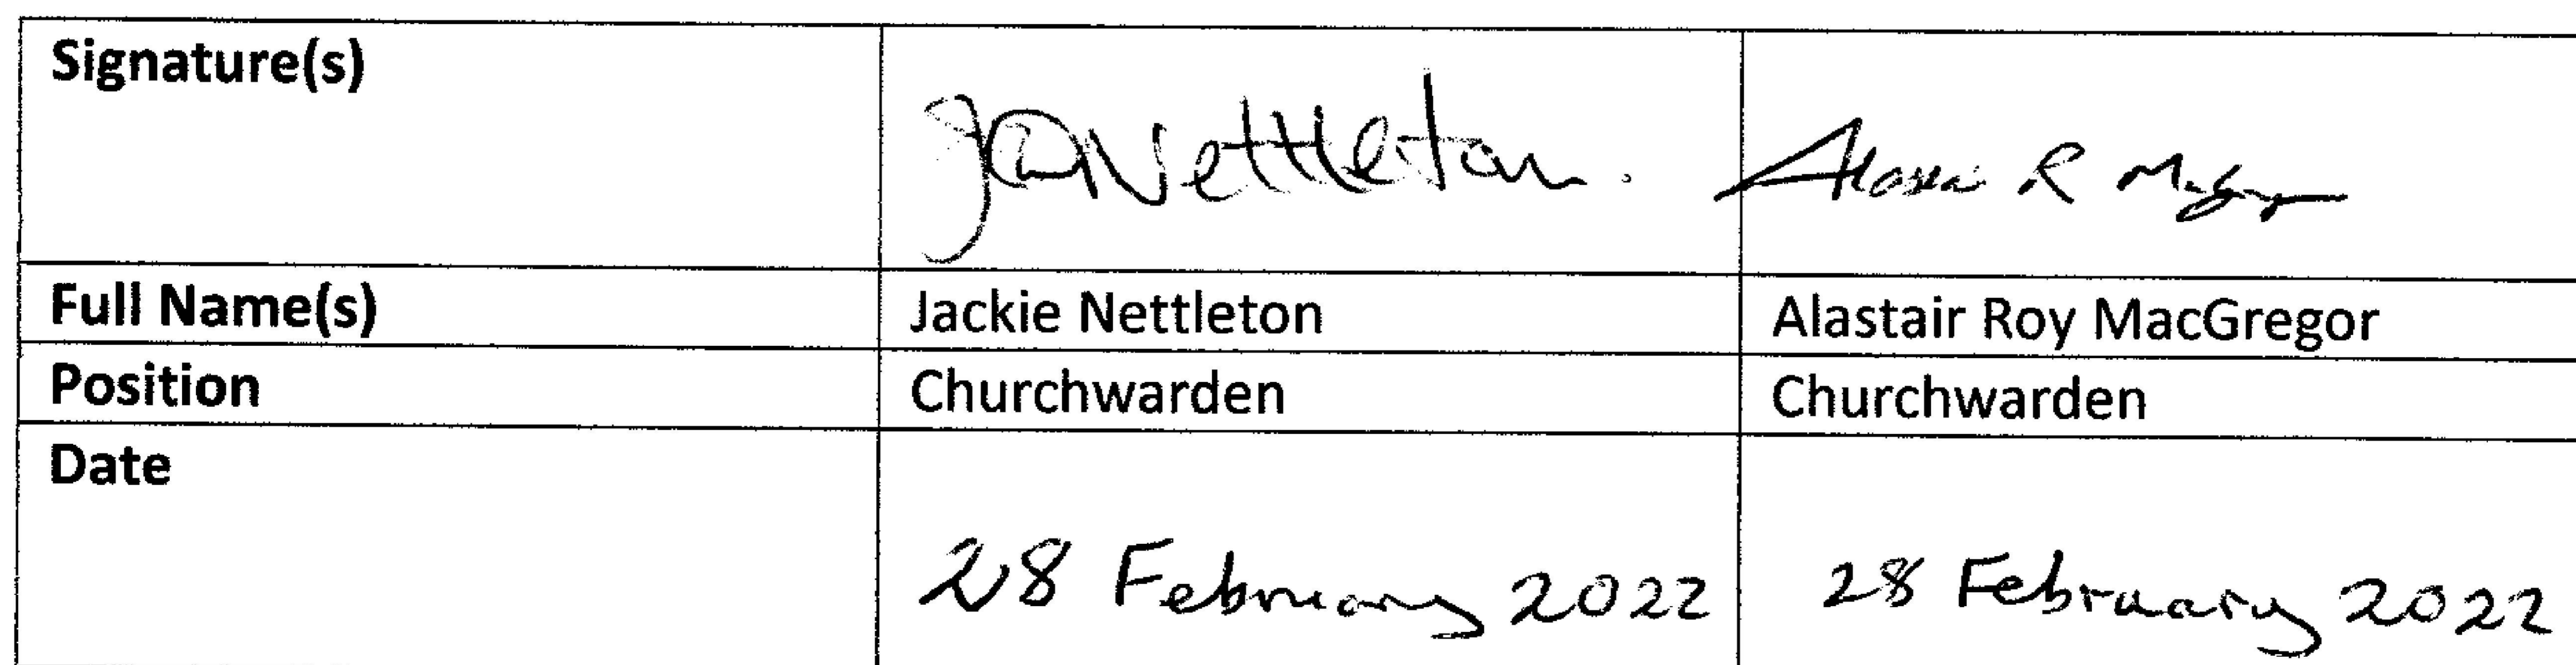 Signature(s) JCNettleton. Alasta R MacGregor
Full Name(s) Jackie Nettleton Alastair Roy MacGregor
Position Churchwarden Churchwarden
Date
28 February 2022 28 February 2022